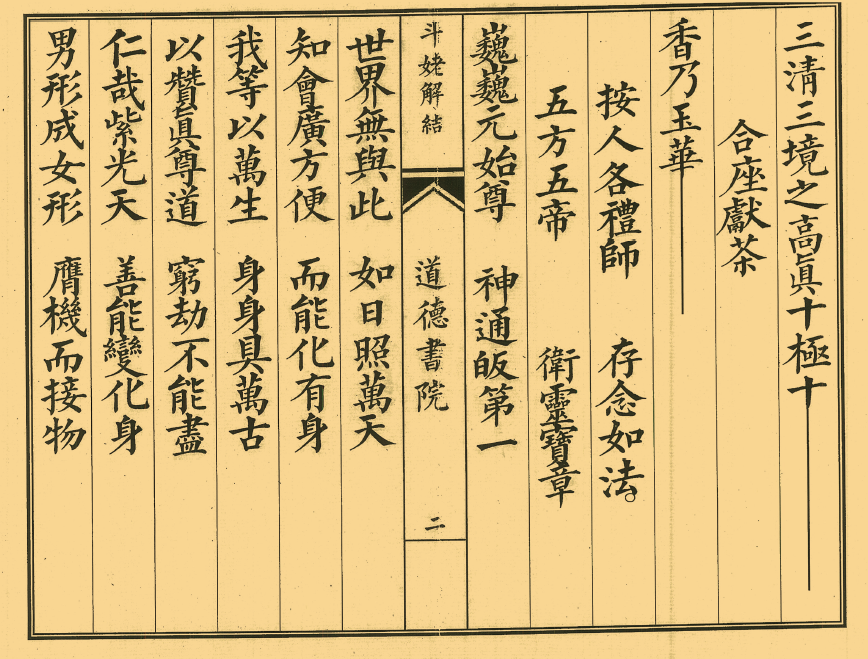 三清三境之高眞十極十
合座獻茶
香乃玉華
按人各禮師 存念如法。
五方五帝 衛靈寶章
巍巍元始尊 神通皈第一
斗姥解結 道德書院 二
世界無與此 如日照萬天
知會廣方便 而能化有身
我等以萬生 身身具萬古
以贊眞尊道 窮劫不能盡
仁哉紫光天 善能變化身
男形成女形 膺機而接物